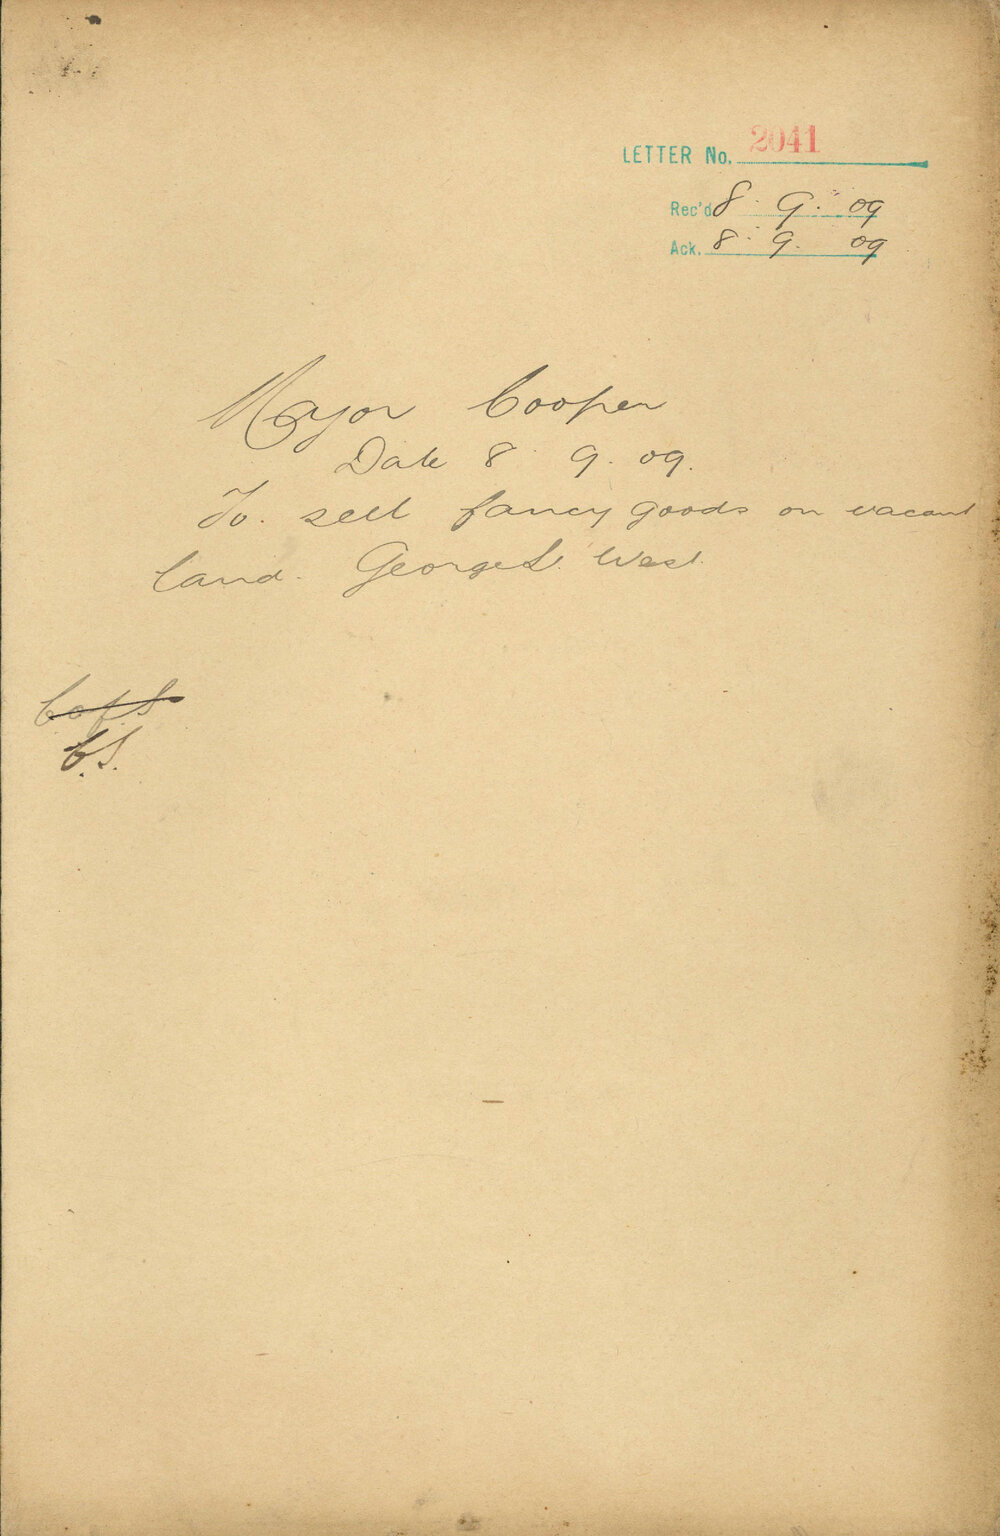 LETTER No. 2041
Rec'd 8. 9. 09
Ack. 8. 9. 09
Mayor Cooper
Date 8. 9. 09.
To. sell fancy goods on vacant
land. George St. West.
C of S
C.S.